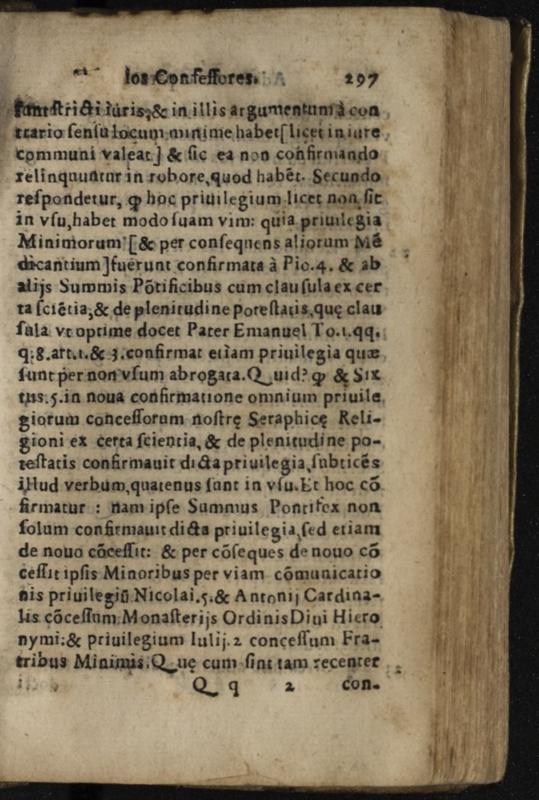 los Confessores. 297
sunt stricti iuris, & in illis argumentum à con
trario sensu locum minime habet [licet in iure
communi valeat] & sic ea non confirmando
relinquuntur in robore, quod habẽt. Secundo
respondetur, ꝙ hoc priuilegium licet non sit
in vsu, habet modo suam vim: quia priuilegia
Minimorum [& per consequens aliorum Mẽ
dicantium] fuerunt confirmata à Pio. 4. & ab
alijs Summis Põtificibus cum clausula ex cer
ta sciẽtia, & de plenitudine potestatis, quę clau
sula vt optime docet Pater Emanuel To. 1. qq.
q. 8. art. 1. & 3. confirmat etiam priuilegia quæ
sunt per non vsum abrogata. Quid? ꝙ & Six
tus. 5. in noua confirmatione omnium priuile
giorum concessorum nostrę Seraphicę Reli-
gioni ex certa scientia, & de plenitudine po-
testatis confirmauit dicta priuilegia, subticẽs
illud verbum, quatenus sunt in vsu. Et hoc cõ
firmatur : nam ipse Summus Pontifex non
solum confirmauit dicta priuilegia, sed etiam
de nouo cõcessit: & per cõseques de nouo cõ
cessit ipsis Minoribus per viam cõmunicatio
nis priuilegiũ Nicolai. 5. & Antonij Cardina-
lis cõcessum Monasterijs Ordinis Diui Hiero
nymi: & priuilegium Iulij. 2 concessum Fra-
tribus Minimis. Quę cum sint tam recenter
Qq 2 con-